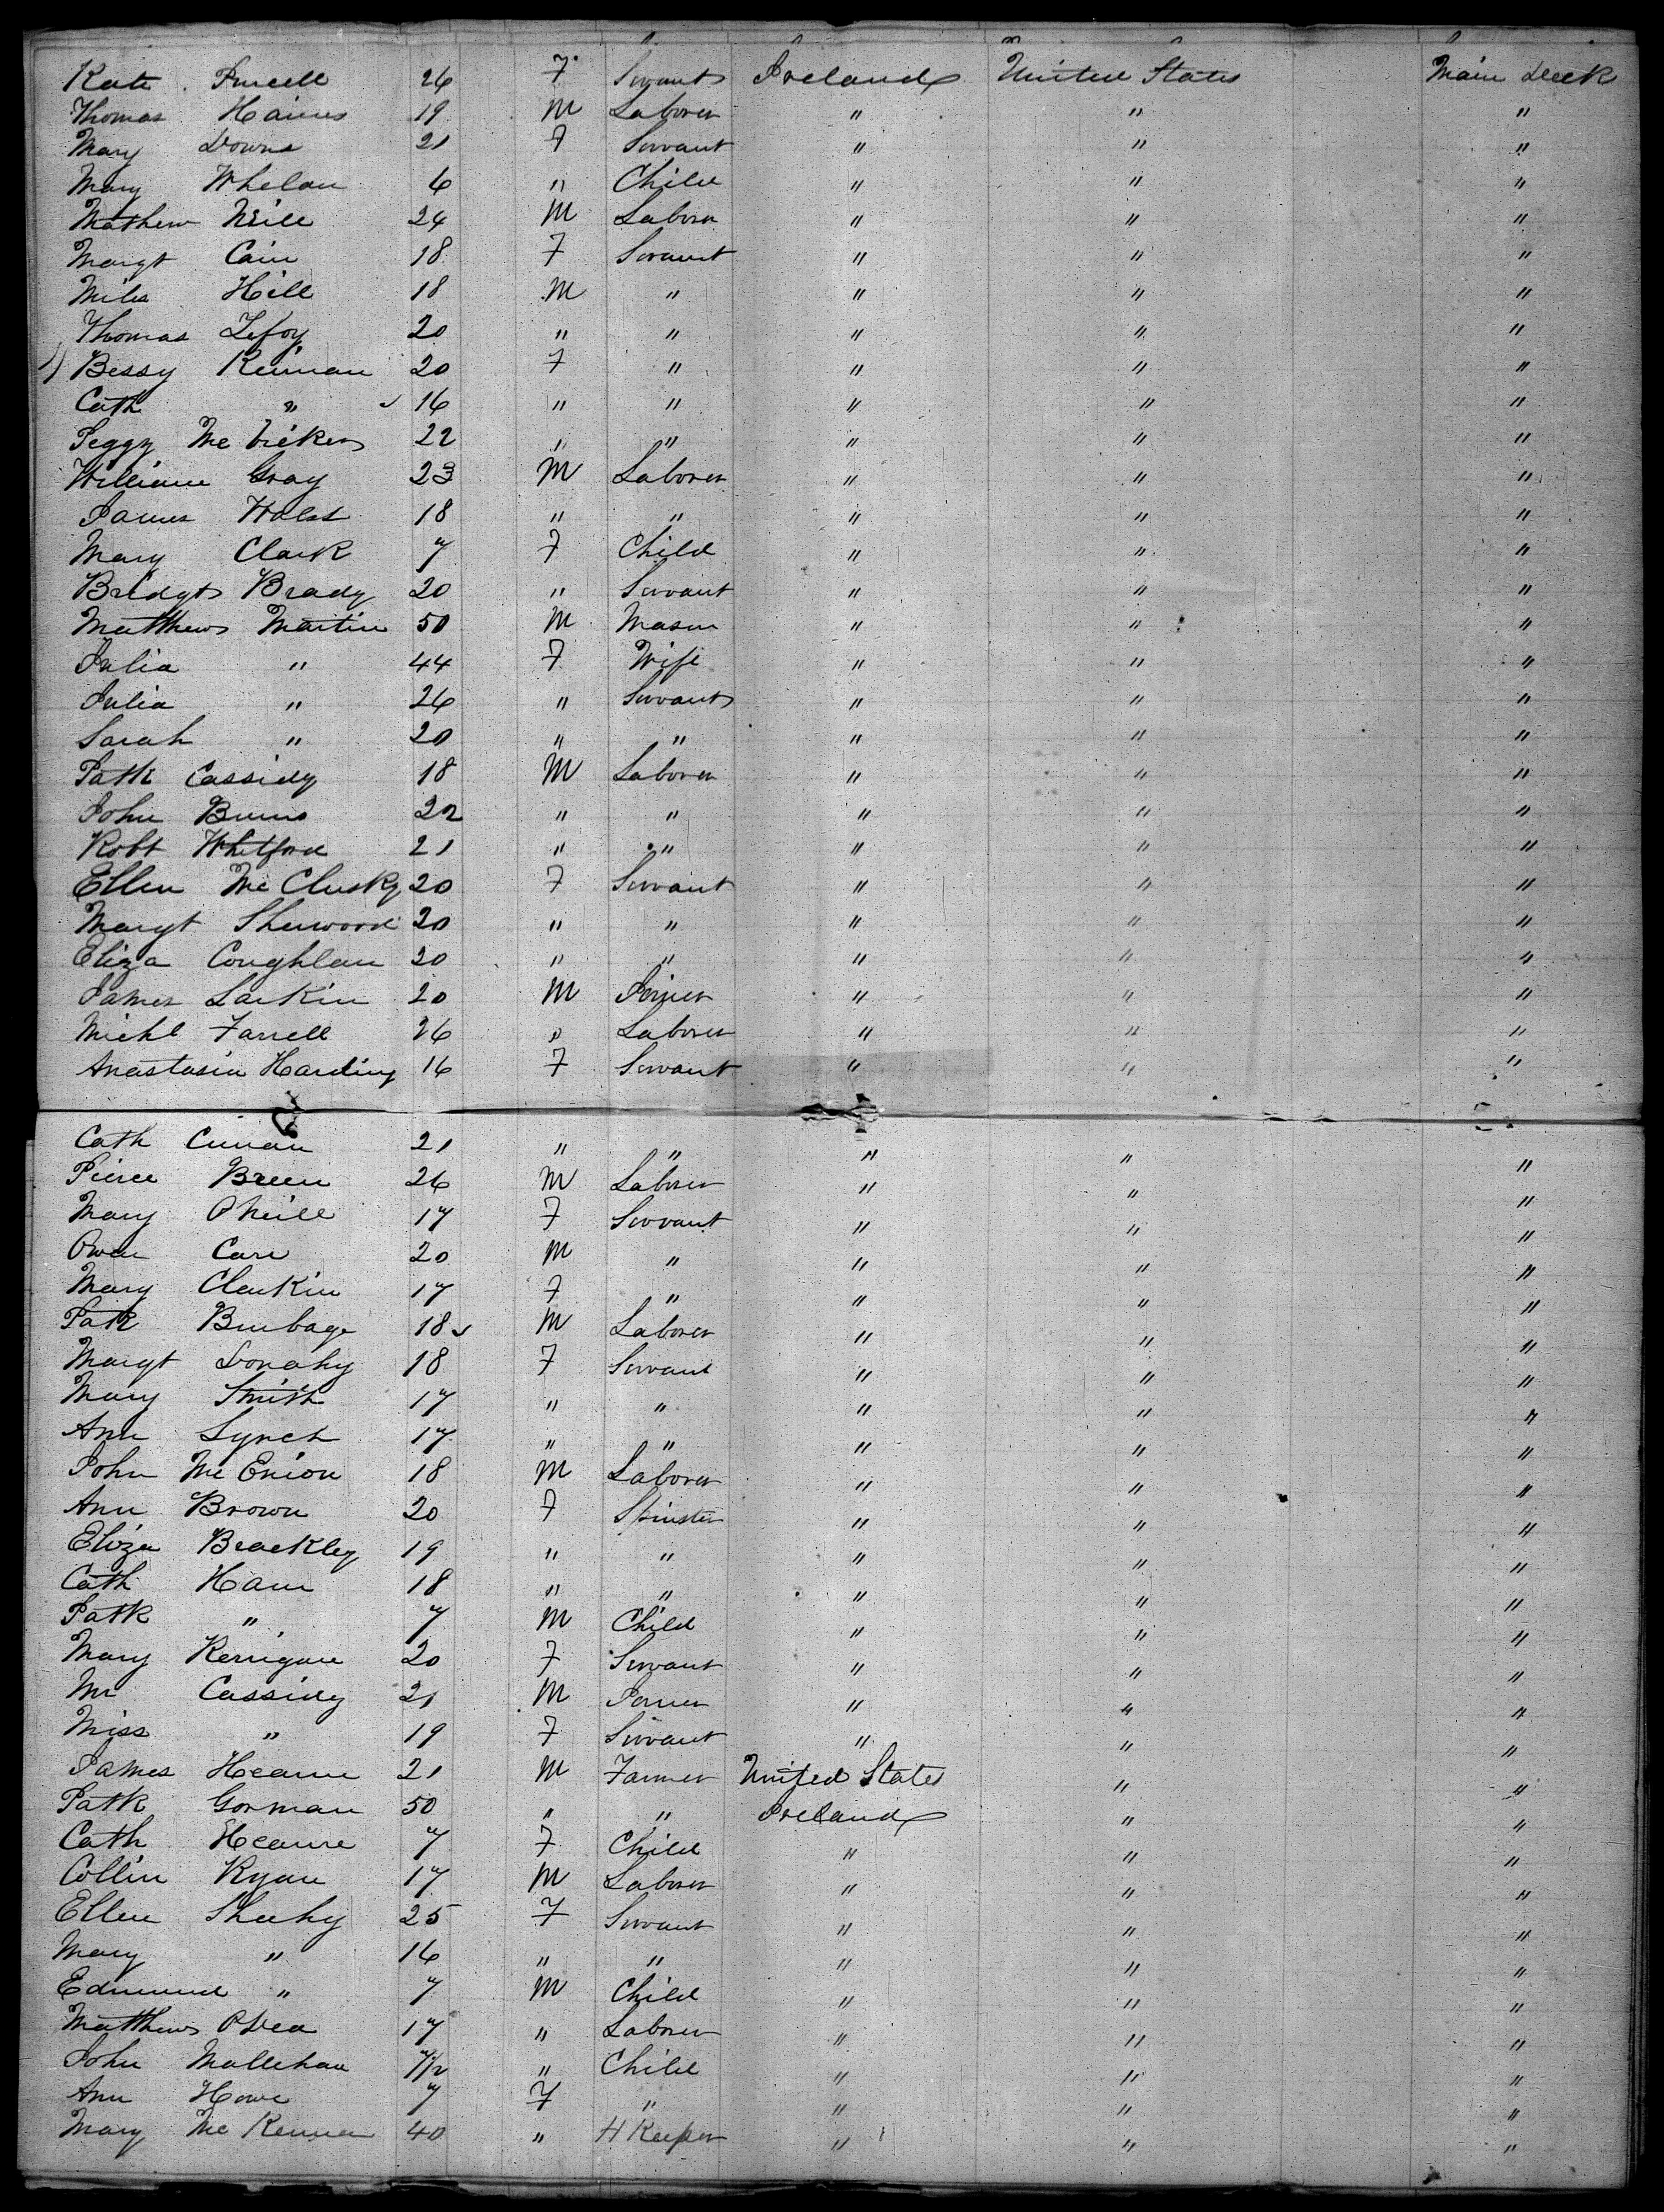 Kate Purcell 26 F Servant Ireland United States Main Deck
Thomas Haines 19 M Laborer " " "
Mary Downs 21 F Servant " " "
Mary Whelan 6 " Child " " "
Mathew Neill 24 M Laborer " " "
Margt Cain 18 F Servant " " "
Miles Hill 18 M " " " "
Thomas Lefoy 20 " " " " "
Bessy Keirnan 20 F " " " "
Cath " 16 " " " " "
Peggy Mc 22 " " " " "
William Gray 23 M Laborer " " "
James Walsh 18 " " " " "
Mary Clark 7 F Child " " "
Bridgt Brady 20 " Servant " " "
Matthew Martin 50 M Mason " " "
Julia " 44 F Wife " " "
Julia " 26 " Servant " " "
Sarah " 20 " " " " "
Patk Cassidy 18 M Laborer " " "
John Burns 22 " " " " "
Robt Whitford 21 " " " " "
Ellen McClusky 20 F Servant " " "
Margt Sherwood 20 " " " " "
Eliza Coughlan 20 " " " " "
James Larkin 20 M Joiner " " "
Michl Farrell 26 " Laborer " " "
Anastasia Harding 16 F Servant " " "
Cath 21 " " " " "
Pierce Breen 26 M Laborer " " "
Mary ONeill 17 F Servant " " "
Owen Carr 20 M " " " "
Mary Clarkin 17 F " " " "
Patk Burbage 18 M Laborer " " "
Margt Donahy 18 F Servant " " "
Mary Smith 17 " " " " "
Ann Lynch 17 " " " " "
John McEnion 18 M Laborer " " "
Ann Brown 20 F Spinster " " "
Eliza Brackley 19 " " " " "
Cath Ham 18 " " " " "
Patk " 7 M Child " " "
Mary Kerrigan 20 F Servant " " "
Mr Cassidy 21 M Joiner " " "
Miss " 19 F Servant " " "
James Hearne 21 M Farmer United States " "
Patk Gorman 50 " " Ireland " "
Cath Hearne 7 F Child " " "
Collin Ryan 17 M Laborer " " "
Ellen Sheehy 25 F Servant " " "
Mary " 16 " " " " "
Edmund " 7 M Child " " "
Matthew ODea 17 " Laborer " " "
John Mallehan " Child " " "
Ann Howe 7 F " " " "
Mary McKenna 40 " H Keeper " " "